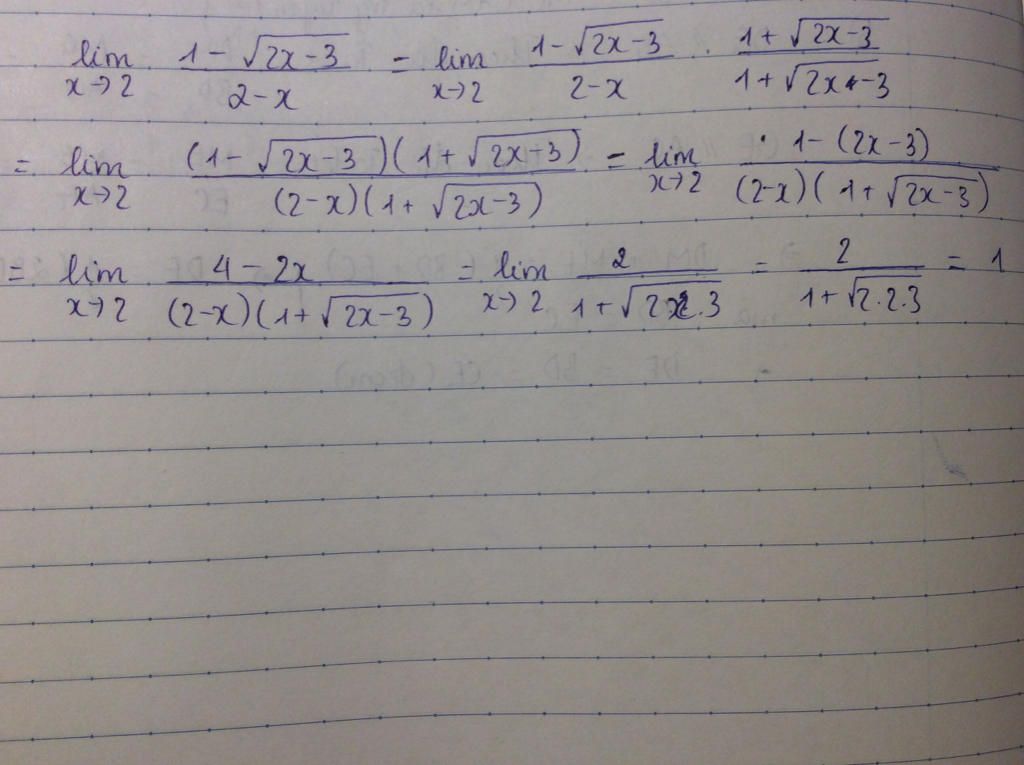 lim x→2 (1-√(2x-3))/(2-x) = lim x→2 (1-√(2x-3))/(2-x) · (1+√(2x-3))/(1+√(2x-3))
= lim x→2 ((1-√(2x-3))(1+√(2x-3)))/((2-x)(1+√(2x-3))) = lim x→2 (1-(2x-3))/((2-x)(1+√(2x-3)))
= lim x→2 (4-2x)/((2-x)(1+√(2x-3))) = lim x→2 2/(1+√(2x.3)) = 2/(1+√(2.2.3)) = 1